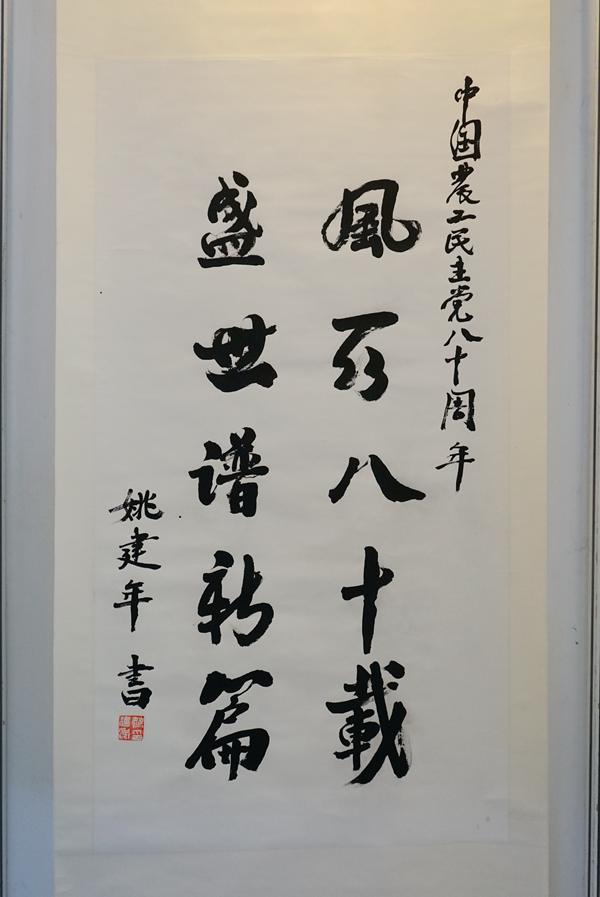 中国农工民主党八十周年
風雨八十載
盛世谱新篇
姚建年 書